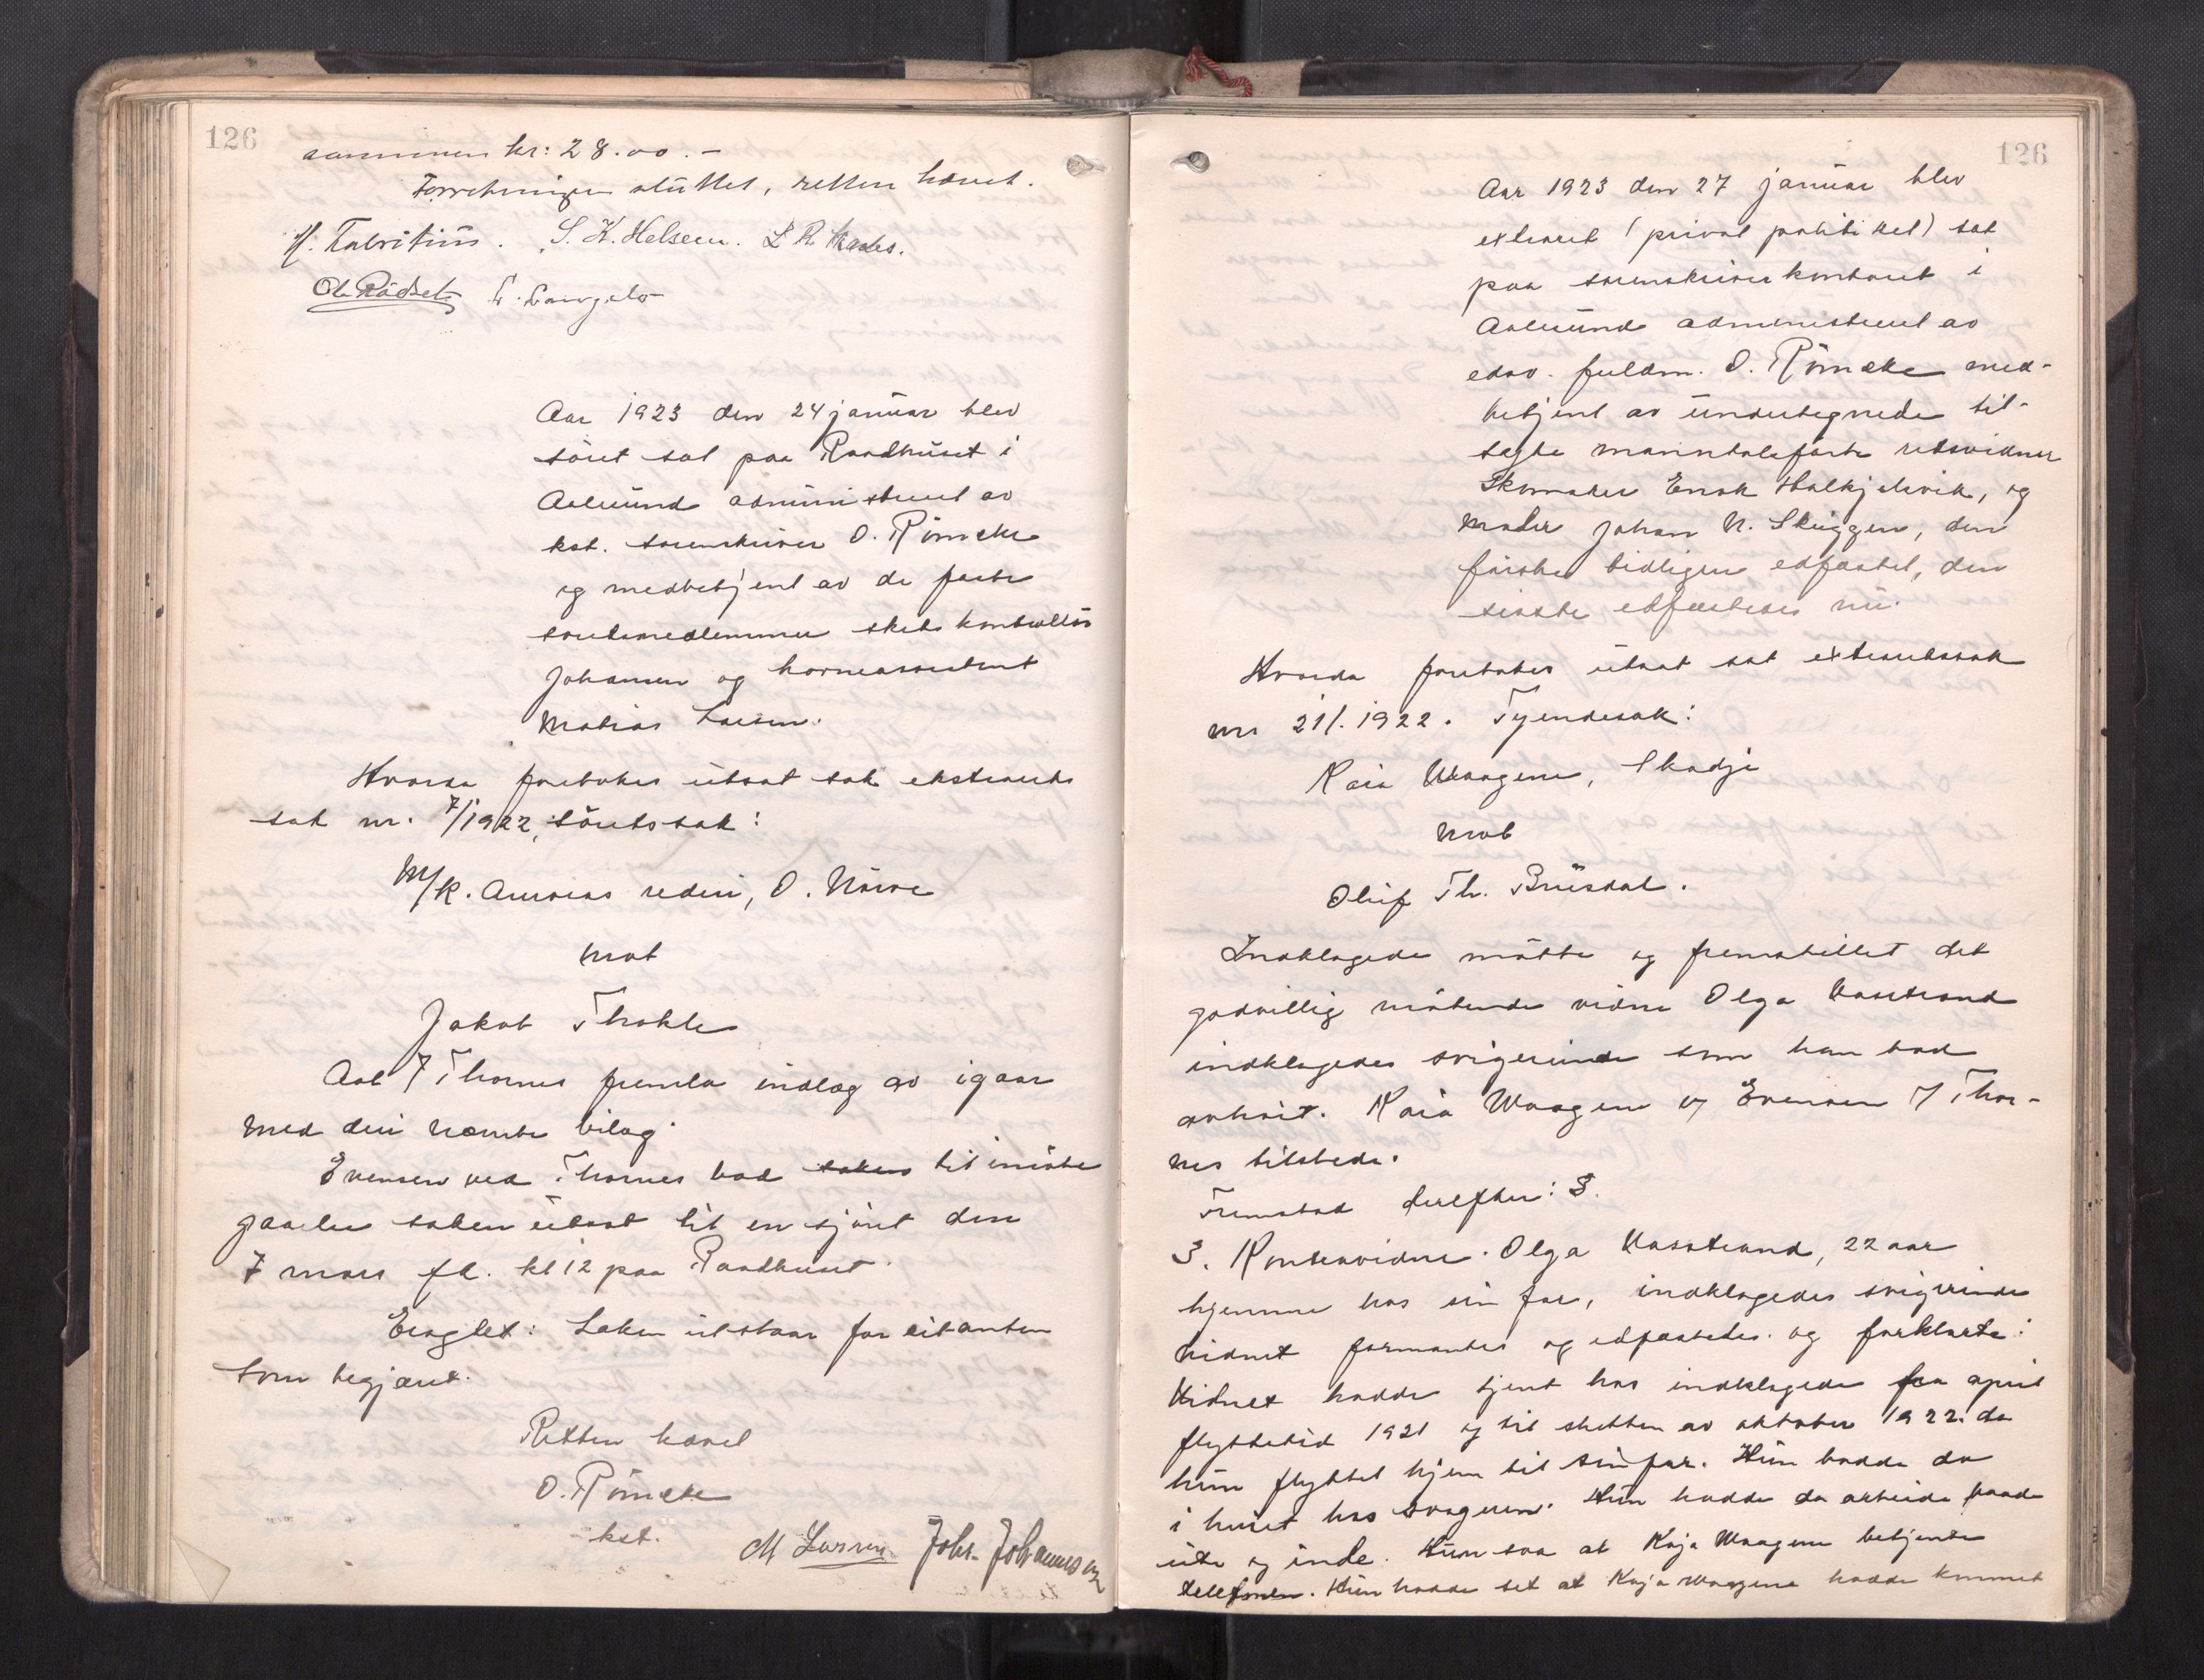 126
sammen kr: 28.00.-
Forretningen sluttet, retten hævet.
H. Fabritius. S. K. Helseen. L R
Ole Rödset L. Langelo
Aar 1923 den 24 januar blev
söret sat paa Raadhuset i
Aalesund administrert av
kst. sorenskriver O. Römcke
og medbetjent av de faste
soretsmedlemmer skibskontrollör
Johansen og havneassistent
Matias Larsen.
Hvorda foretokes utsat sak ekstrarets
sak nr. 7/1922, söretssak:
M/k. rederi, O. Nörve
mot
Jakob Thokle
Aal 7 Thornes fremla indlæg av igaar
med deri nævnte bilag.
Evensen ved Thornes bad saken til imöte
gaaelse saken utsat til en sjöret den
7 mars fk. kl 12 paa Raadhuset.
Eragtet: Saken utstaar for citanten
som begjæret.
Retten hævet
O. Römcke
kst.
M Larsen Johs. Johannsen
126
Aar 1923 den 27 januar blev
extraret (privat politi ret) sat
paa sorenskriverkontoret i
Aalesund administrert av
edsv. fuldm. O. Römcke med-
betjent av undertegnede til-
sagte manntalsförte retsvidner
Skomaker Enok Halkjelsvik, og
Maler Johan N. Skuggen, den
förste tidligere edfæstet, den
sidste edfæstedes nu.
Hvorda foretokes utsat sat extraretssak
nr 21/. 1922. Tyendesak:
Kaia Waagene, Skodje
mot
Oluf Th. Brusdal.
Indklagede mötte og fremstillet det
godvillig mötende vidne Olga Vasstrand
indklagedes svigerinde som han bad
avhört. Kaia Waagene og Evensen 7 Thor-
nes tilstede.
Fremstod derefter: 3.
3. Kontravidne. Olga Vasstrand, 22 aar
hjemme hos sin far, indklagedes svigerinde
Vidnet formantes og edfæstedes og forklarte:
Vidnet hadde tjent hos indklagede fra april
flyttetid 1921 og til slutten av oktober 1922. da
hun flyttet hjem til sin far. Hun bodde da
i huset hos svogeren. Hun hadde da arbeide baade
ute og inde. Hun saa at Kaja Waagene betjente
telefonen. Hun hadde set at Kaja Waagene hadde kommet